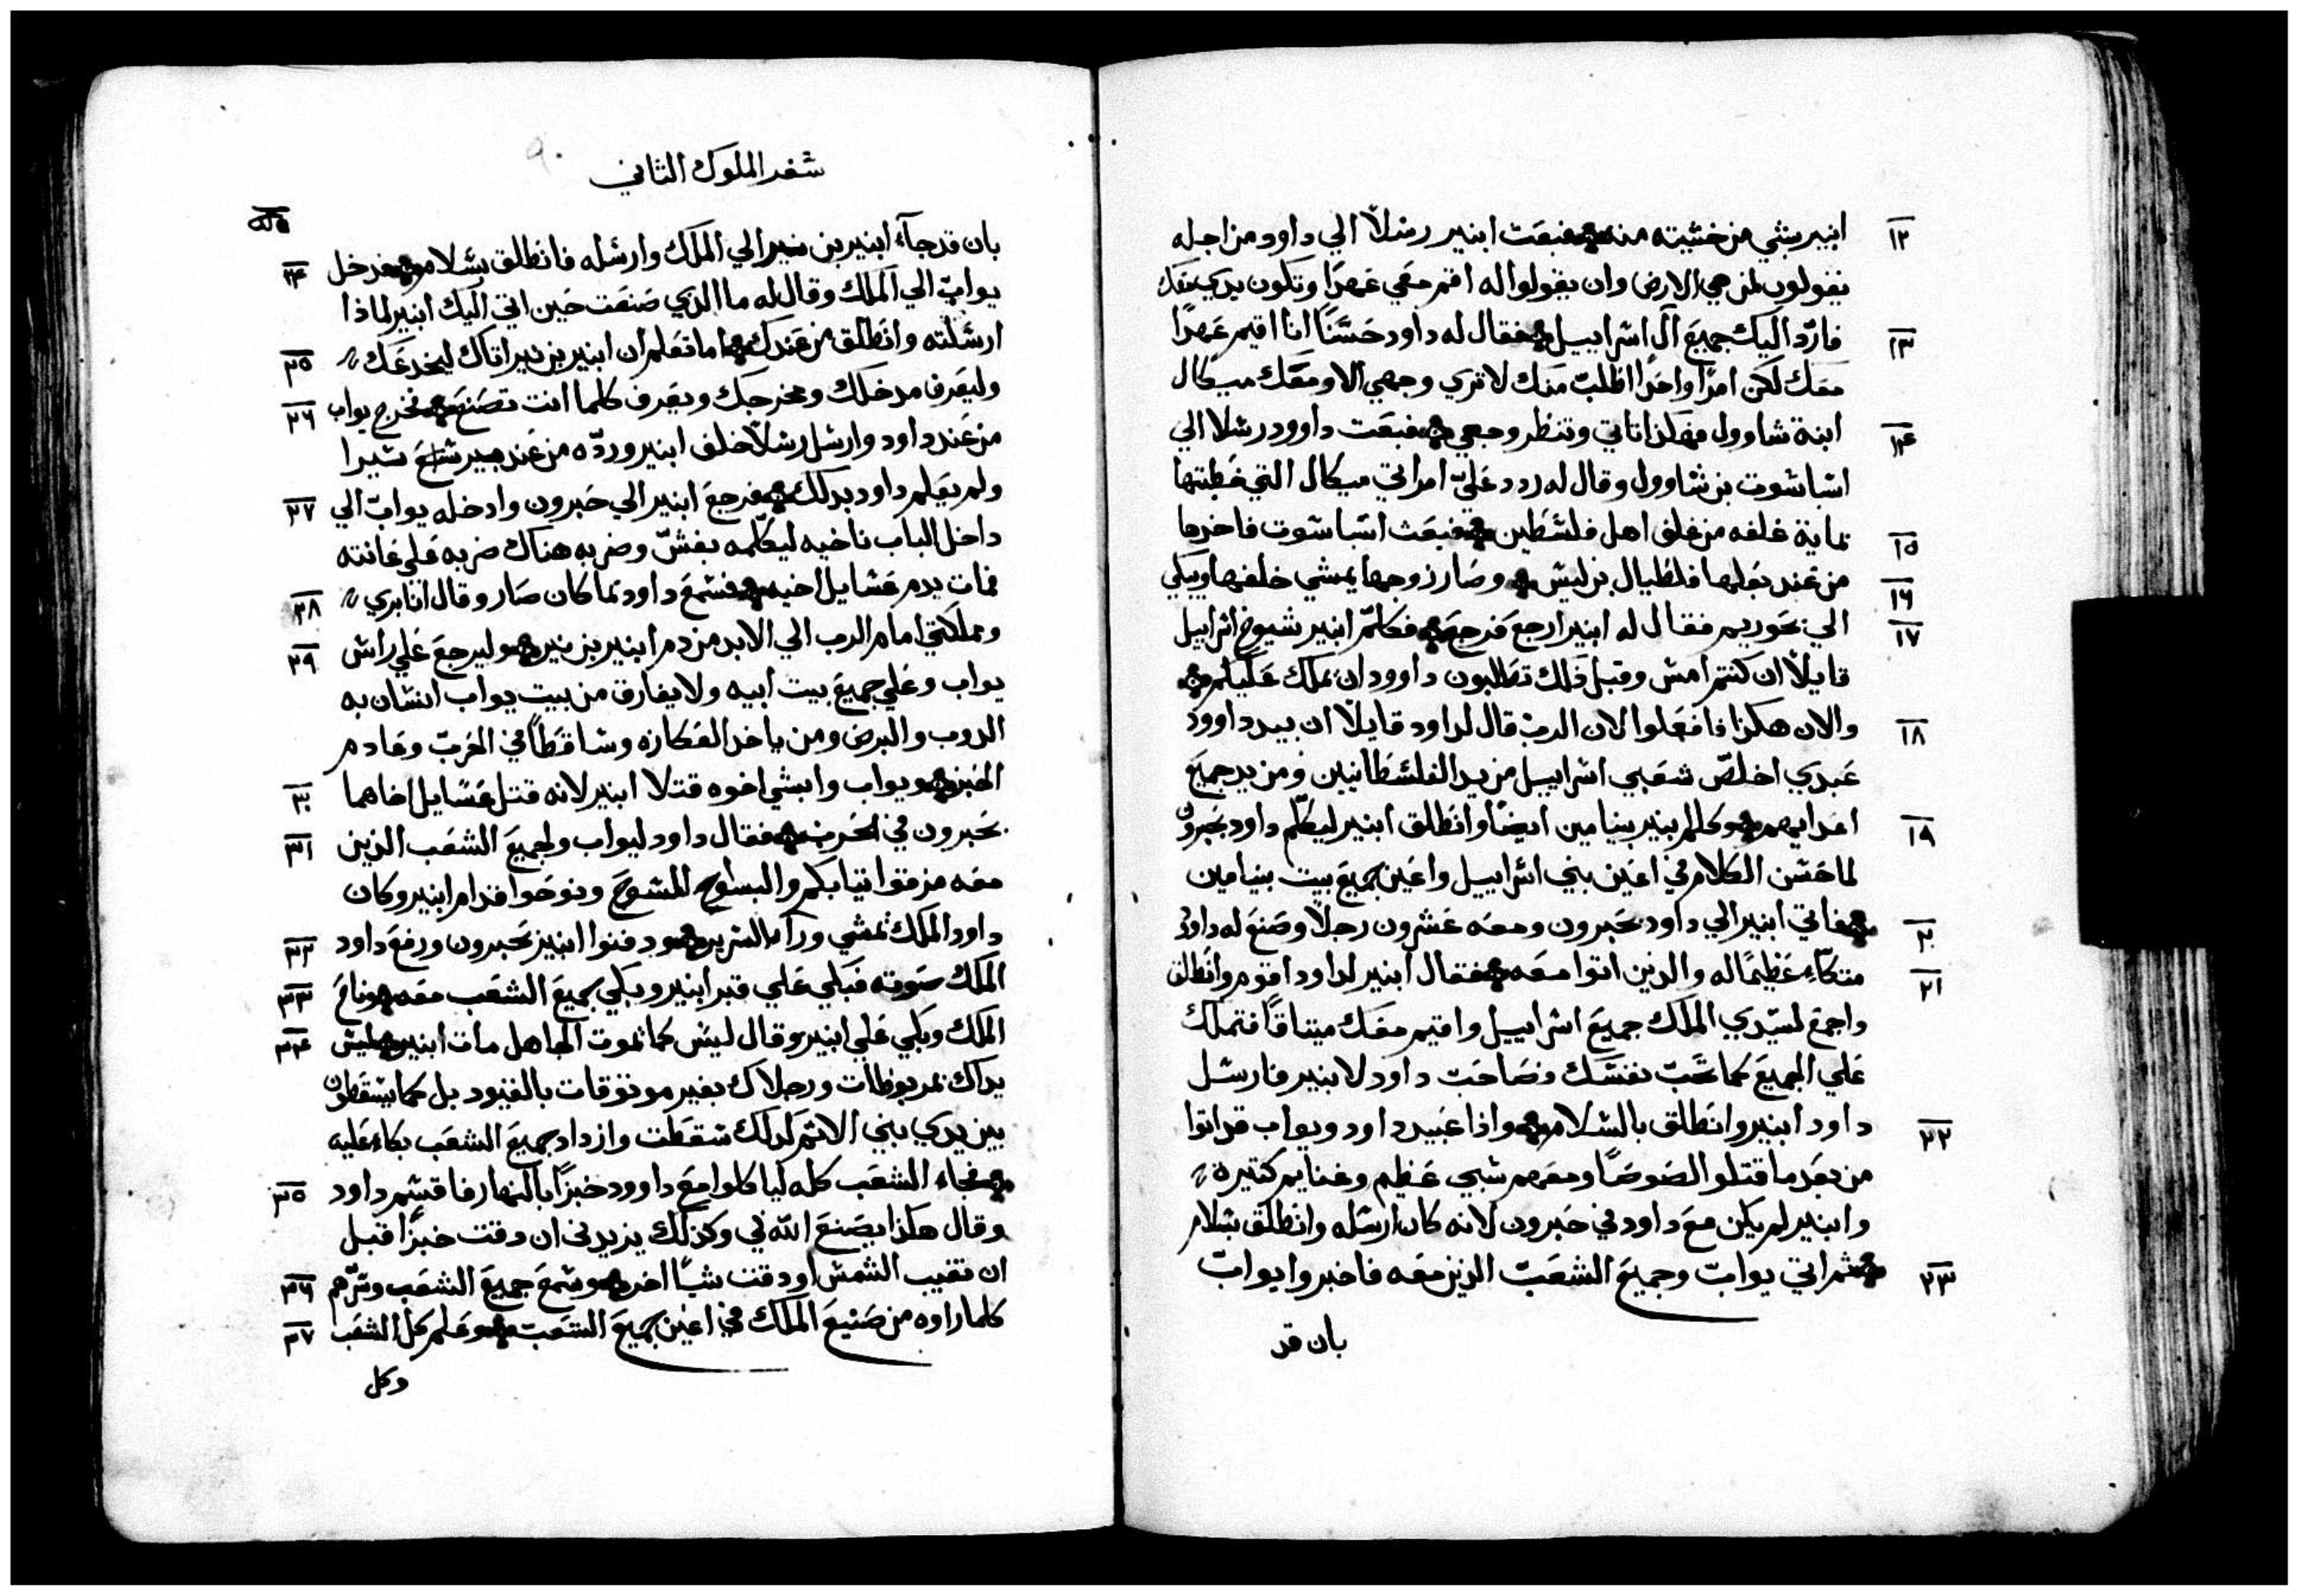 ١٢ ابنير بشي من خشيته منه فبعت ابنير رسلاً الي داود من اجله
يقولون لمن هي الارض وان يقولوا له اقم معي عهدًا وتكون يدي معك
١٣ فاردّ اليك جميع آل اسراييل فقال له داود حسنًا انا اقيم عهدًا
معك لكن امرًا واحدًا اطلب منك لا تري وجهي الا ومعك ميكال
١٤ ابنة شاوول فهكذا تاتي وتنظر وجهي فبعت داوود رسلا الي
اشباشوت بن شاوول وقال له ردد عليّ امراتي ميكال التي خطبتها
١٥ بماية غلفه من غلف اهل فلسطين فبعث اشباشوت فاخدها
١٦ من عند بعلها فلطيال بن ليش وصار زوجها يمشي خلفها ويبكي
١٧ الي بحوريم فقال له ابنير ارجع فرجع فكلّم ابنير شيوخ اسراييل
قايلاً ان كنتم امس وقبل ذلك تطلبون داوود ان يملك عليكم
١٨ والان هكذا فافعلوا لان الرب قال لداود قايلاً ان بيد داوود
عبدي اخلص شعبي اسراييل من يد الفلسطانيين ومن يد جميع
١٩ اعدايهم وكلم ابنير بنيامين ايضًا وانطلق ابنير ليكلم داود بحبرون
لما حسن الكلام في اعين بني اسراييل واعين جميع بيت بنيامين
٢٠ فاتي ابنير الي داود بحبرون ومعه عشرون رجلاً وصنع له داود
٢١ متكاء عظيمًا له والدين اتوا معه فقال ابنير لداود اقوم وانطلق
واجمع لسيّدي الملك جميع اسراييل واقيم معك ميتاقًا فتملك
علي الجميع كما تحب نفسك وصاحب داود لابنير فارسل
٢٢ داود ابنير وانطلق بالسلام واذا عبيد داود ويواب قد اتوا
من بعد ما قتلوا لصوصًا ومعهم شبي عظيم وغنايم كتيرة
وابنير لم يكن مع داود في حبرون لانه كان ارسله وانطلق بسلام
٢٣ ثم اتي يواب وجميع الشعب الدين معه فاخبروا يواب
بان قد
سفر الملوك الثاني
بان قد جآء ابنير بن نير الي الملك وارسله فانطلق بسلام فدخل ٢٤
يواب الي الملك وقال له ما الدي صنعت حين اتي اليك ابنير لماذا
ارسلته وانطلق من عندك اما تعلم ان ابنير بن نير اتاك ليخدعك ٢٥
وليعرف مدخلك ومخرجك ويعرف كلما انت تصنع فخرج يواب ٢٦
من عند داود وارسل رسلاً خلف ابنير وردّه من عند بير شيرا
ولم يعلم داود بدلك فرجع ابنير الي حبرون وادخله يواب الي ٢٧
داخل الباب ناحيه ليكلمه بغشّ وضربه هناك ضربه علي عانته
فمات بدم عسايل اخيه فسمع داود بما كان صار وقال انا بري ٢٨
ومملكتي امام الرب الي الابد من دم ابنير بن نير وليرجع علي راس ٢٩
يواب وعلي جميع بيت ابيه ولا يفارق من بيت يواب انسان به
الدوب والبرص ومن ياخد العكازه وساقطًا في الحرب وعادم
الخبز ويواب وابشي اخوه قتلا ابنير لانه قتل عسايل اخاهما ٣٠
بحبرون في الحرب فقال داود ليواب ولجميع الشعب الذين ٣١
معه مزقوا تيابكم والبسوا المسوح ونوحوا قدام ابنير وكان
داود الملك يمشي ورآ السرير ودفنوا ابنير بحبرون ورفع داود ٣٢
الملك صوته فبكي علي قبر ابنير وبكي جميع الشعب معه وناح ٣٣
الملك وبكي علي ابنير وقال ليس كما تموت الجاهل مات ابنير ليس ٣٤
يداك بمربوطات ورجلاك بغير موتوقات بالقيود بل كما يسقطون
بين يدي بني الاتم لدلك سقطت وازداد جميع الشعب بكاء عليه
فجاء الشعب كله لياكلوا مع داوود خبزًا بالنهار فاقسم داود ٣٥
وقال هكذا يصنع الله لي وكذلك يزيدني ان دقت خبزًا قبل
ان تغيب الشمس او دقت شيًا اخر وسمع جميع الشعب وسرّهم ٣٦
كلما راوه من صنيع الملك في اعين جميع الشعب وعلم كل الشعب ٣٧
وكل